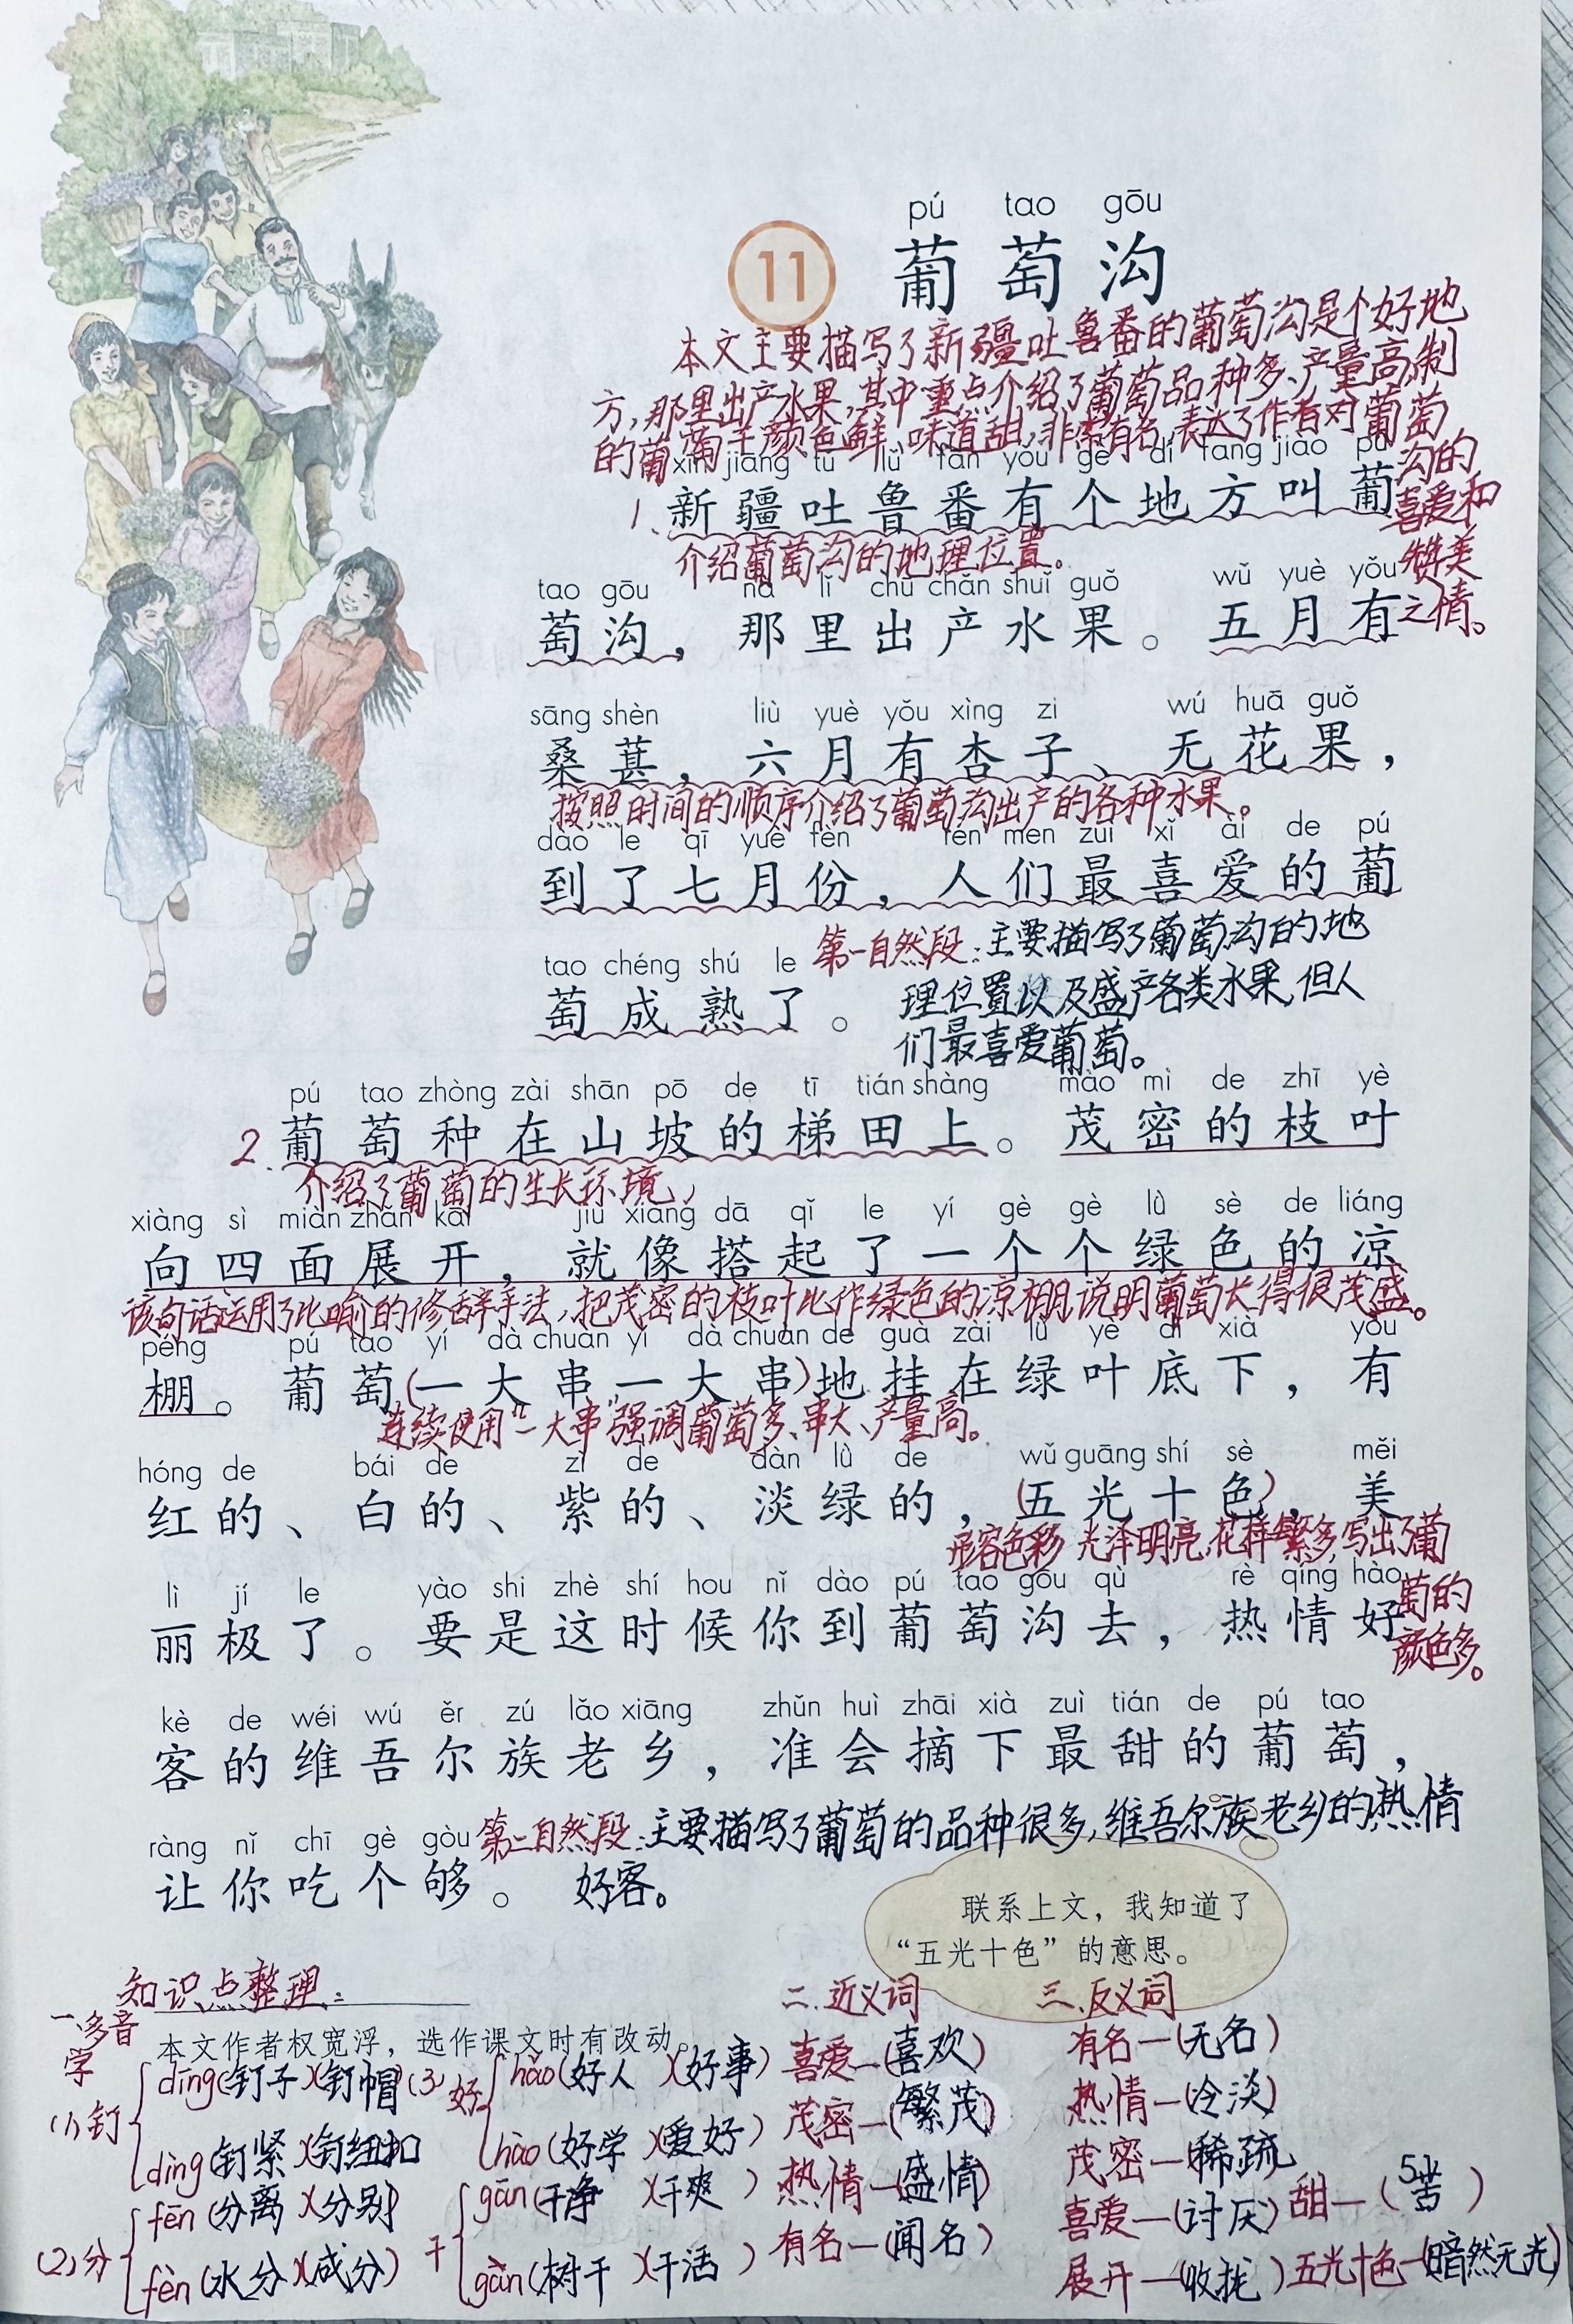 pú tao gōu
11 葡萄沟
本文主要描写了新疆吐鲁番的葡萄沟是个好地
方,那里出产水果,其中重点介绍了葡萄品种多、产量高,制
的葡萄干颜色鲜、味道甜,非常有名,表达了作者对葡萄
沟的
喜爱和
赞美
之情。
xīn jiāng tǔ lǔ fān yǒu gè dì fang jiào pú
1. 新疆吐鲁番有个地方叫葡
介绍葡萄沟的地理位置。
tao gōu nà lǐ chū chǎn shuǐ guǒ wǔ yuè yǒu
萄沟，那里出产水果。五月有
sāng shèn liù yuè yǒu xìng zi wú huā guǒ
桑葚，六月有杏子、无花果，
按照时间的顺序介绍了葡萄沟出产的各种水果。
dào le qī yuè fèn rén men zuì xǐ ài de pú
到了七月份，人们最喜爱的葡
tao chéng shú le
萄成熟了。
第一自然段:主要描写了葡萄沟的地
理位置以及盛产各类水果,但人
们最喜爱葡萄。
pú tao zhòng zài shān pō de tī tián shàng mào mì de zhī yè
2. 葡萄种在山坡的梯田上。茂密的枝叶
介绍了葡萄的生长环境。
xiàng sì miàn zhǎn kāi jiù xiàng dā qǐ le yí gè gè lǜ sè de liáng
向四面展开，就像搭起了一个个绿色的凉
该句话运用了比喻的修辞手法,把茂密的枝叶比作绿色的凉棚,说明葡萄长得很茂盛。
péng pú tao yí dà chuàn yí dà chuàn de guà zài lǜ yè dǐ xià yǒu
棚。葡萄(一大串一大串)地挂在绿叶底下，有
连续使用“一大串”强调葡萄多、串大、产量高。
hóng de bái de zǐ de dàn lǜ de wǔ guāng shí sè měi
红的、白的、紫的、淡绿的，(五光十色)，美
形容色彩 光泽明亮,花样繁多,写出了葡
萄的
颜色多。
lì jí le yào shi zhè shí hou nǐ dào pú tao gōu qù rè qíng hào
丽极了。要是这时候你到葡萄沟去，热情好
kè de wéi wú ěr zú lǎo xiāng zhǔn huì zhāi xià zuì tián de pú tao
客的维吾尔族老乡，准会摘下最甜的葡萄，
ràng nǐ chī gè gòu
让你吃个够。
第二自然段:主要描写了葡萄的品种很多,维吾尔族老乡的热情
好客。
联系上文，我知道了
“五光十色”的意思。
知识点整理:
本文作者权宽浮，选作课文时有改动。
一、多音
字
(1)钉
dīng(钉子)(钉帽)
dìng(钉紧)(钉纽扣)
(2)分
fēn(分离)(分别)
fèn(水分)(成分)
(3)好
hǎo(好人)(好事)
hào(好学)(爱好)
干
gān(干净)(干爽)
gàn(树干)(干活)
二.近义词
喜爱—(喜欢)
茂密—(繁茂)
热情—(盛情)
有名—(闻名)
三.反义词
有名—(无名)
热情—(冷淡)
茂密—(稀疏)
喜爱—(讨厌) 甜—(苦)
展开—(收拢) 五光十色—(暗然无光)